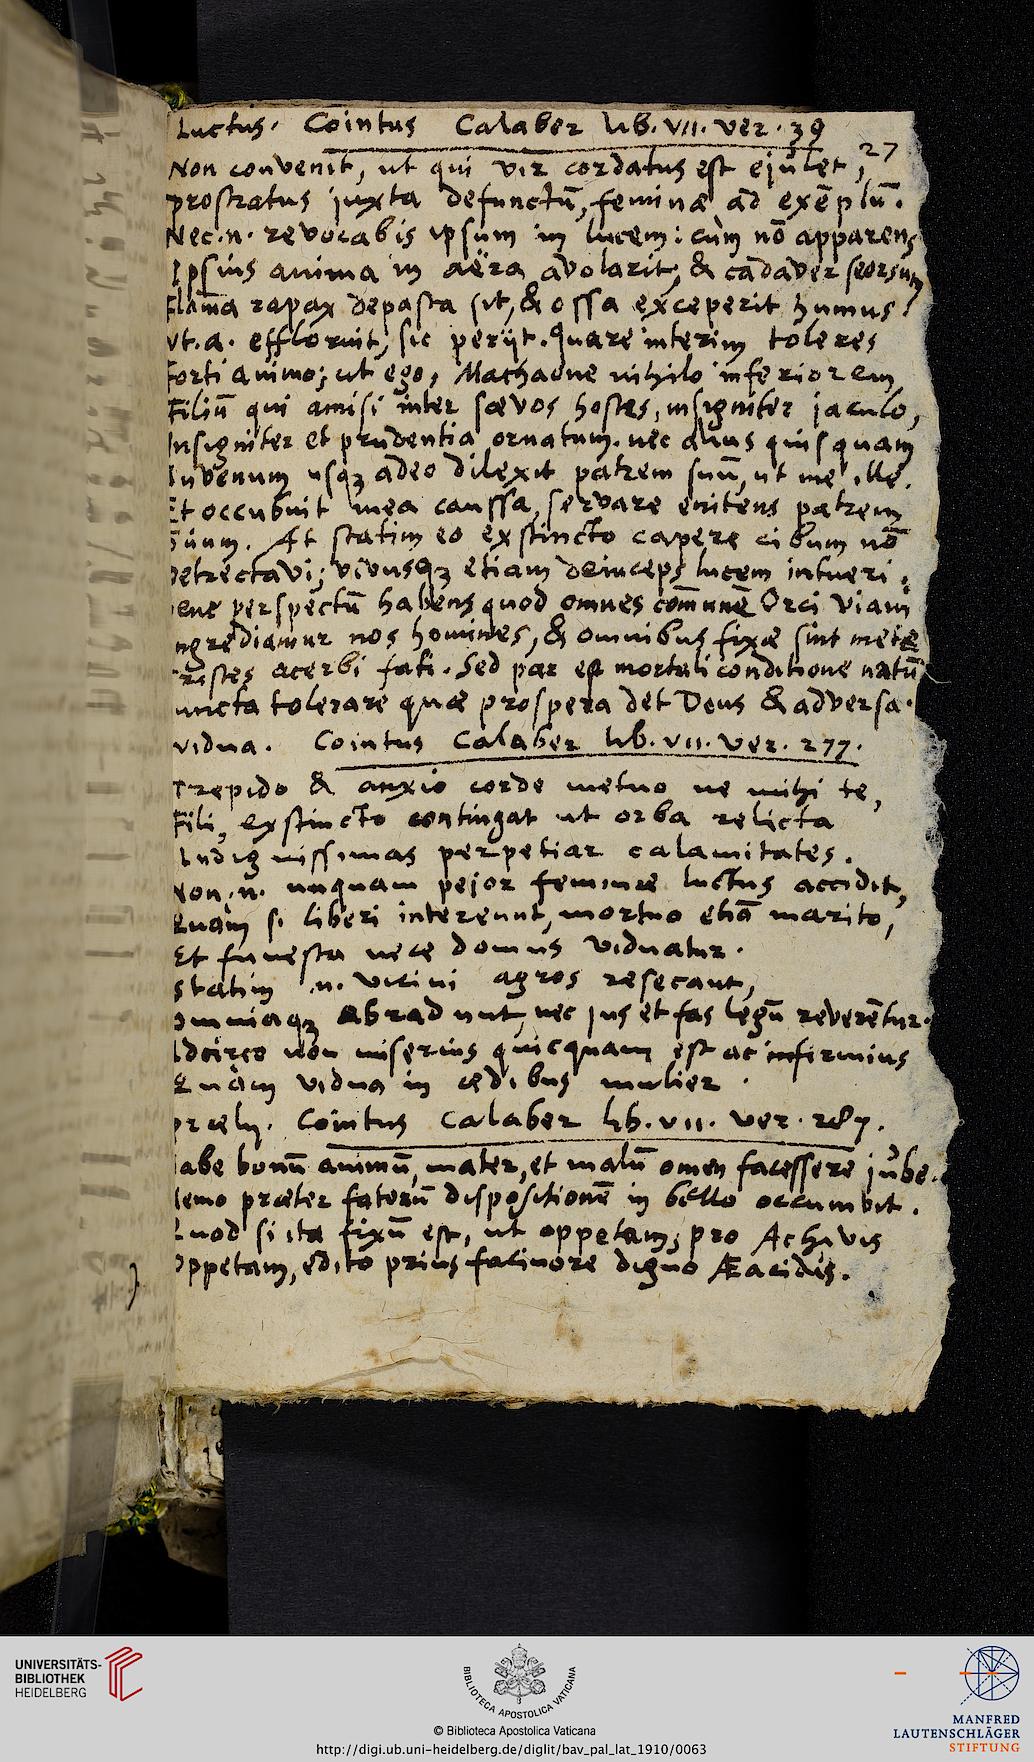 Luctus. Cointus Calaber lib. VII. ver. 39
27
Non convenit, ut qui vir cordatus est ejulet,
prostratus juxta defunctū, feminæ ad exēplū.
Nec .n. revocabis ipsum in lucem: cùm nō apparens
Ipsius anima in aëra avolarit, & cadaver seorsum
Flāma rapax depasta sit, & ossa exceperit humus.
Vt .a. effloruit, sic perijt. Quare interim toleres
Forti animo; ut ego, Machaone nihilo inferiorem
Filiū qui amisi inter sævos hostes, insigniter jaculo,
Insigniter et prudentia ornatum. nec alius quisquam
Iuvenum usqꝫ adeo dilexit patrem suū, ut me ille.
Et occubuit mea caussa, servare enitens patrem
Suum. At statim eo exstincto capere cibum nō
Detrectavi; vivusqꝫ etiam deinceps lucem intueri.
bene perspectū habens quod omnes cōmunē Orci viam
ngrediamur nos homines, & omnibus fixæ sint metæ
ristes acerbi fati. Sed par est mortali conditione natū
uncta tolerare quæ prospera det Deus & adversa.
vidua. Cointus Calaber lib. VII. ver. 277.
Trepido & anxio corde metuo ne mihi te,
Fili, exstincto contingat ut orba relicta
Indignissimas perpetiar calamitates.
Non .n. unquam pejor feminæ luctus accidit,
Quàm si liberi intereunt, mortuo etiā marito,
Et funesta nece domus viduatur.
Statim .n. vicini agros resecant,
Omniaqꝫ abradunt, nec jus et fas legū reverētur.
Idcirco non miserius quicquam est ac infirmius
Quàm vidua in ædibus mulier.
prælij. Cointus Calaber lib. VII. ver. 287.
abe bonū animū, mater, et malū omen facessere jube.
Nemo præter fatorū dispositionē in bello occumbit.
Quod si ita fixū est, ut oppetam, pro Achivis
Oppetam, edito prius facinore digno Æacidis.
UNIVERSITÄTS-
BIBLIOTHEK
HEIDELBERG
BIBLIOTECA APOSTOLICA VATICANA
© Biblioteca Apostolica Vaticana
http://digi.ub.uni-heidelberg.de/diglit/bav_pal_lat_1910/0063
MANFRED
LAUTENSCHLÄGER
STIFTUNG